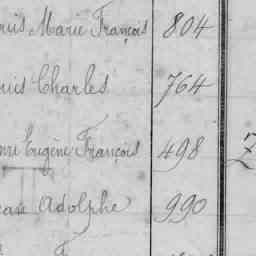 Marie François 804
Charles 764
Eugène François 498
Adolphe 990